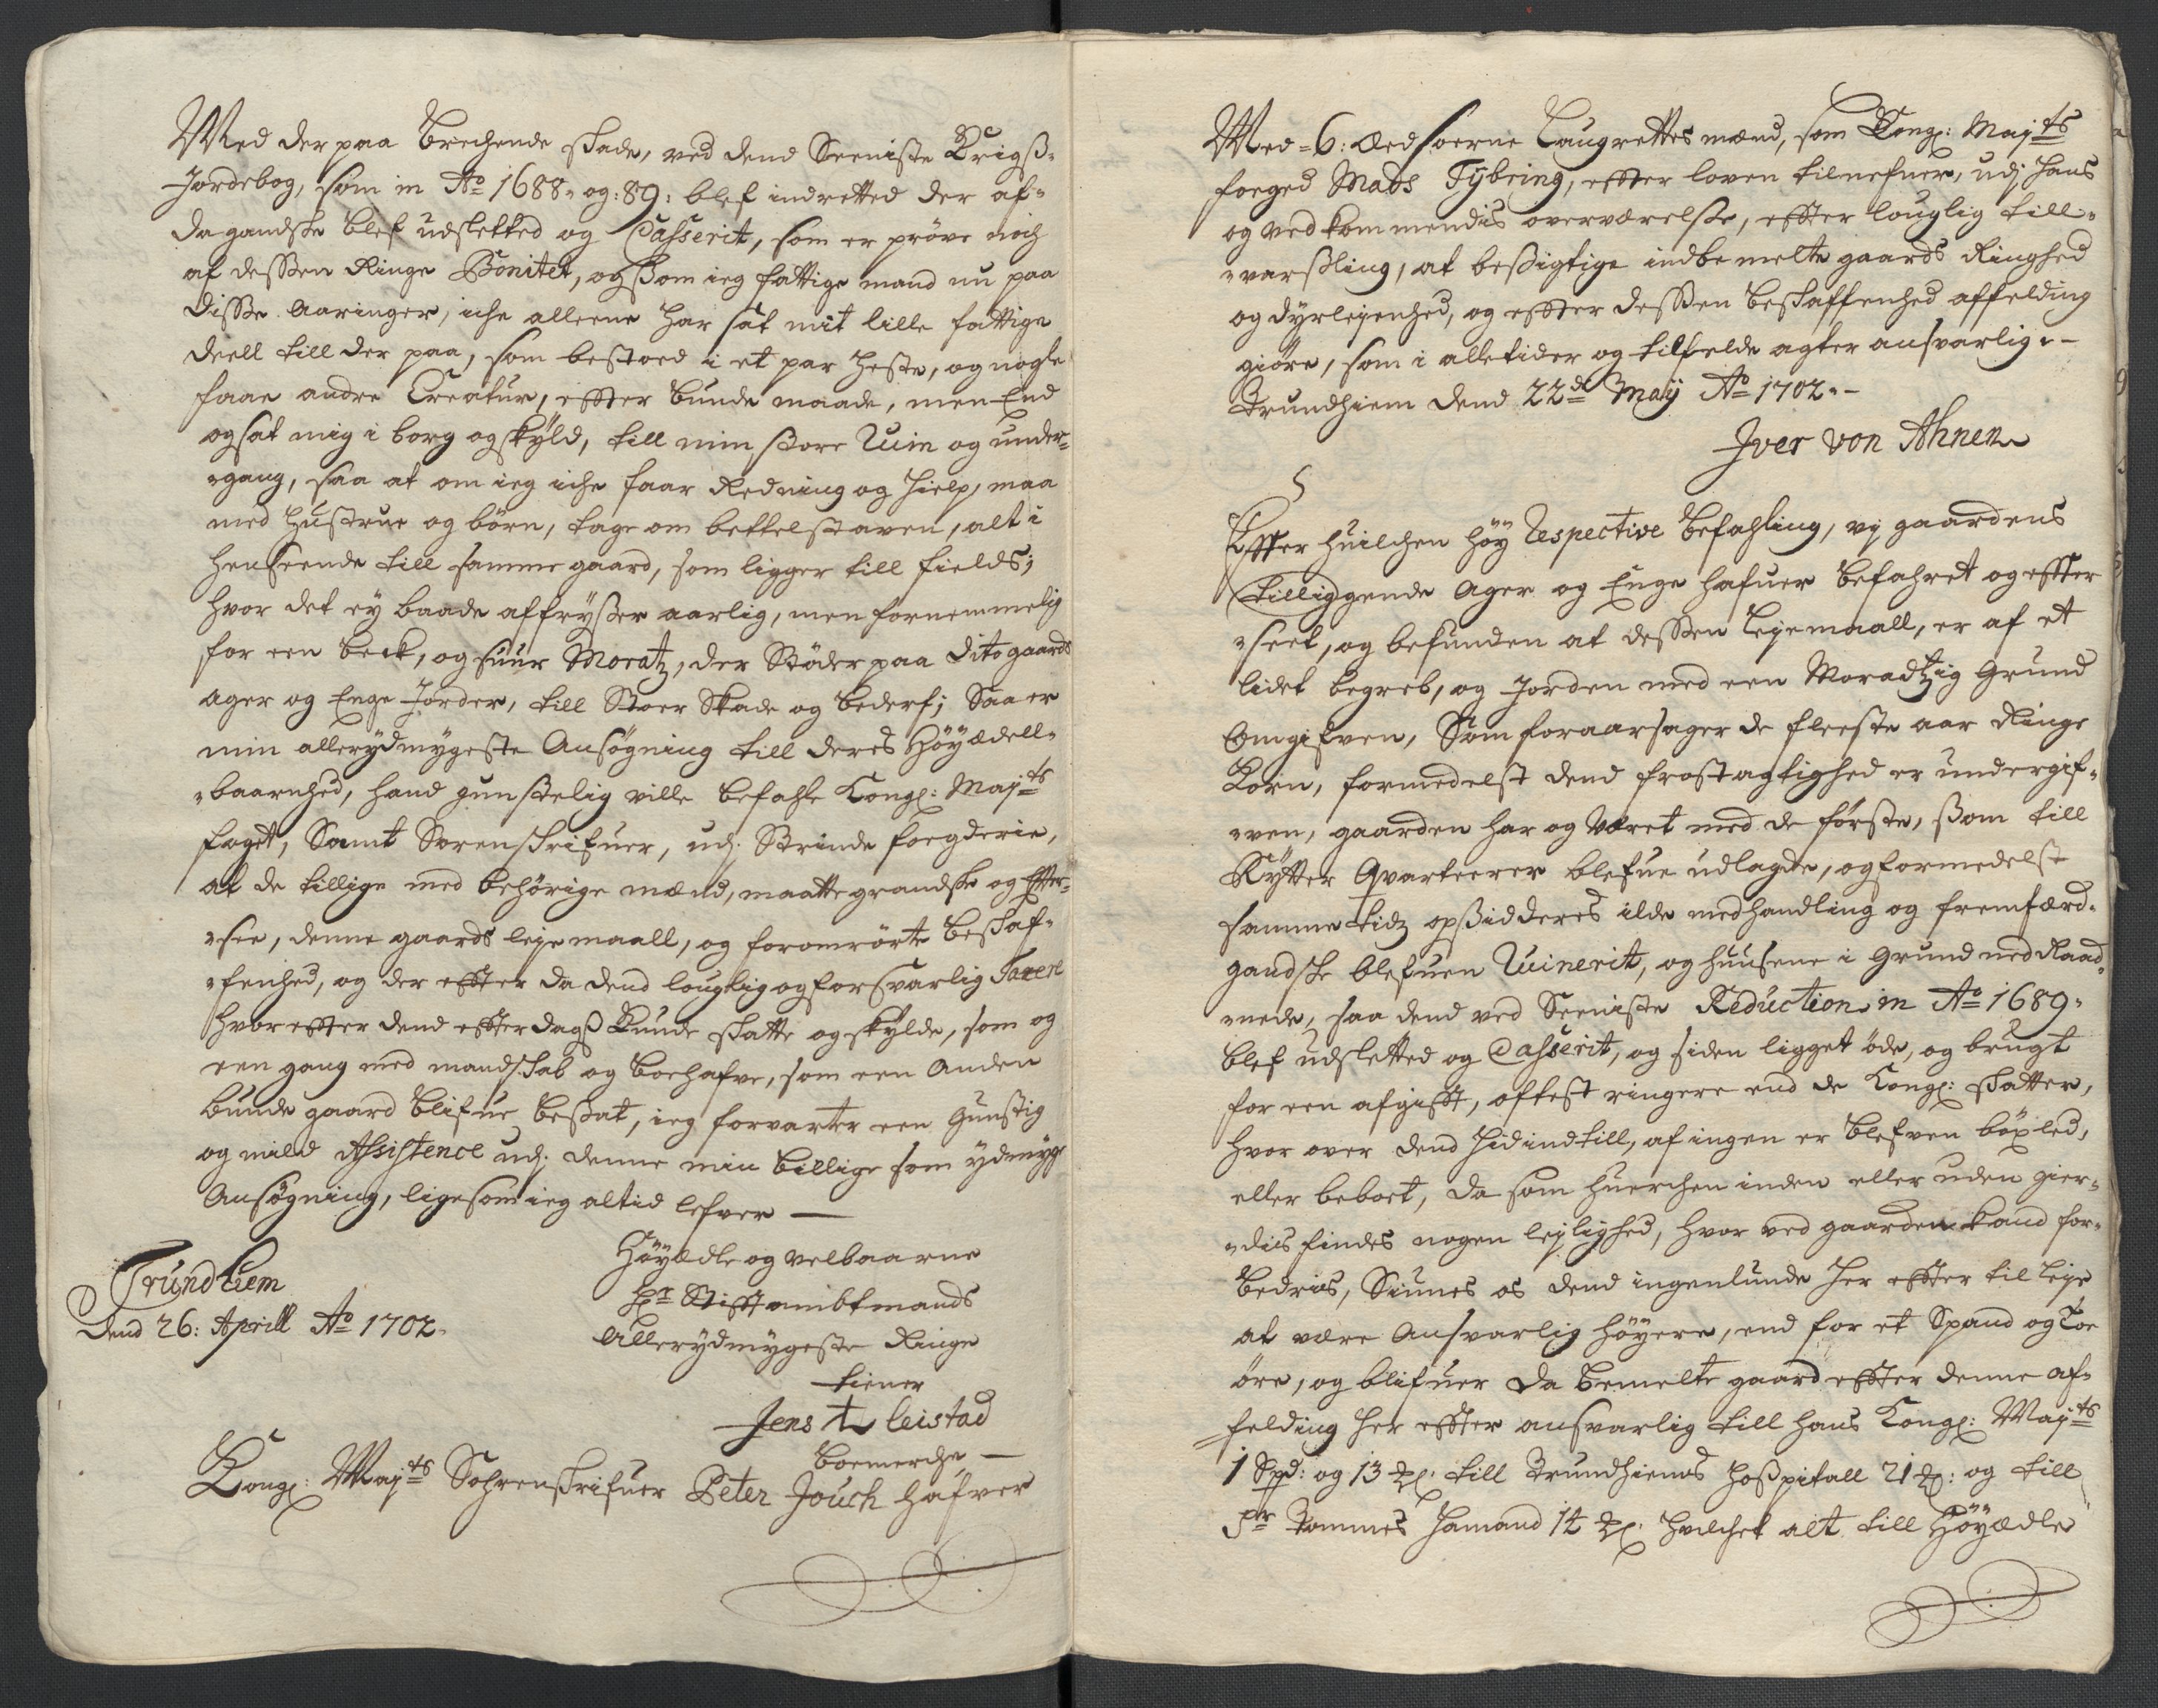 Med der paa Brechende skade, ved dend Seeniste Krigß-
Jordebog, som in Ao 1688. og: 89: blef indretted der af-
da gandske blef udsletted og Casserit, som er pröve noch
af desßen Ringe Bonitet, og ßom ieg fattige mand nu paa
disße Aaringer, iche alleene har sat mit lille fattige
deell till der paa, som bestoed i et par heste, og nogle
faae andre Creatur, effter bunde maade, men End
og sat mig i borg og skyld, till min store Ruin og under-
-gang, saa at om ieg iche faar Redning og hielp, maa
med hustrue og börn, tage om bettelstaven, alt i
henseende till samme gaard, som ligger till fields;
hvor det ey baade affryßer aarlig, men fornemmelig
for een beck, og suur Moratz, der Stöder paa dito gaards
ager og Enge Jorder, till Stoer Skade og bederf; Saa er
min allerydmygeste Ansögning till deres Höyædell-
-baarnhed, hand gunstelig ville befahle Kongl: Majts
foget, Samt Sorenskrifuer, udj. Strinde foegderie,
at de tillige med behörige mænd, maatte grandske og Effter-
-see, denne gaards leje maall, og foromrörte beskaf-
-fenhed, og der effter da dend louglig og forsvarlig Taxere
hvor effter dend effterdagß kunde skatte og skylde, som og
een gang med mandskab og boehafve, som een Anden
bunde gaard blifue besat, ieg forvarter een Gunstig
og mild Assistence udj. denne min billige som ydmyge
Ansögning, ligesom ieg altid lefver —
Höyædle og velbaarne
Hr Stifft ambtmands
Allerydmygeste Ringe
tiener
Jens Leistad
Boemerche —
Trundhiem
Dend 26: Aprill Ao 1702.
Kongl: Majts Sohrenskrifuer Peter Jouch hafver
Med = 6: Eedsoerne Laugrettes mænd, som Kongl: Majts
foeged Mads Tybring, effter loven tilnefner, udj hans
og vedkommendis overværelse, effter louglig till-
-varßling, at beßigtige indbemelte gaards Ringhed
og dyrlejenhed, og effter desßen beskaffenhed affelding
giöre, som i alle tider og tilfelde agter ansvarlig. -
Trundhiem dend 22de Maij Ao 1702. -
Jver von Ahnen
Effter huilchen höy Respective befahling, vj gaardens
tilliggende Ager og Enge hafuer befahret og effter
-seet, og befunden at desßen lejemaall, er af et
lidet begreb, og Jorden med een Moradtzig Grund
Omgifven, Som foraarsager de fleeste aar Ringe
Korn, formedelst dend frostagtighed er undergif-
-ven, gaarden har og været med de förste, ßom till
Rytter Qvarteerer blefue udlagde, og formedelst
samme tidz opßidderes ilde medhandling og fremfærd.
gandske blefuen Ruinerit, og huusene i Grund ned Raad-
-nede, saa dend ved Seeniste Reduction in Ao 1689.
blef udsletted og Casserit, og siden ligget öde, og brugt
for een afgifft, oftest ringere end de Kongl: skatter,
hvor over dend hid indtill, af ingen er blefven böxled,
eller beboet, da som huerchen inden eller uden gier-
-dis findes nogen lejlighed, hvor ved gaarden kand for-
bedris, Siunes os dend ingenlunde her effter til leje
at være Ansvarlig höyere, end for et Spand og Toe
öre, og blifuer da bemelte gaard effter denne af-
felding her effter ansvarlig till hans Kongl: Majts
1 Spd: og 13 till Trundhiems Hoßpitall 21 og till
Sr Tommes Hamand 14 huilchet alt till Höyædle